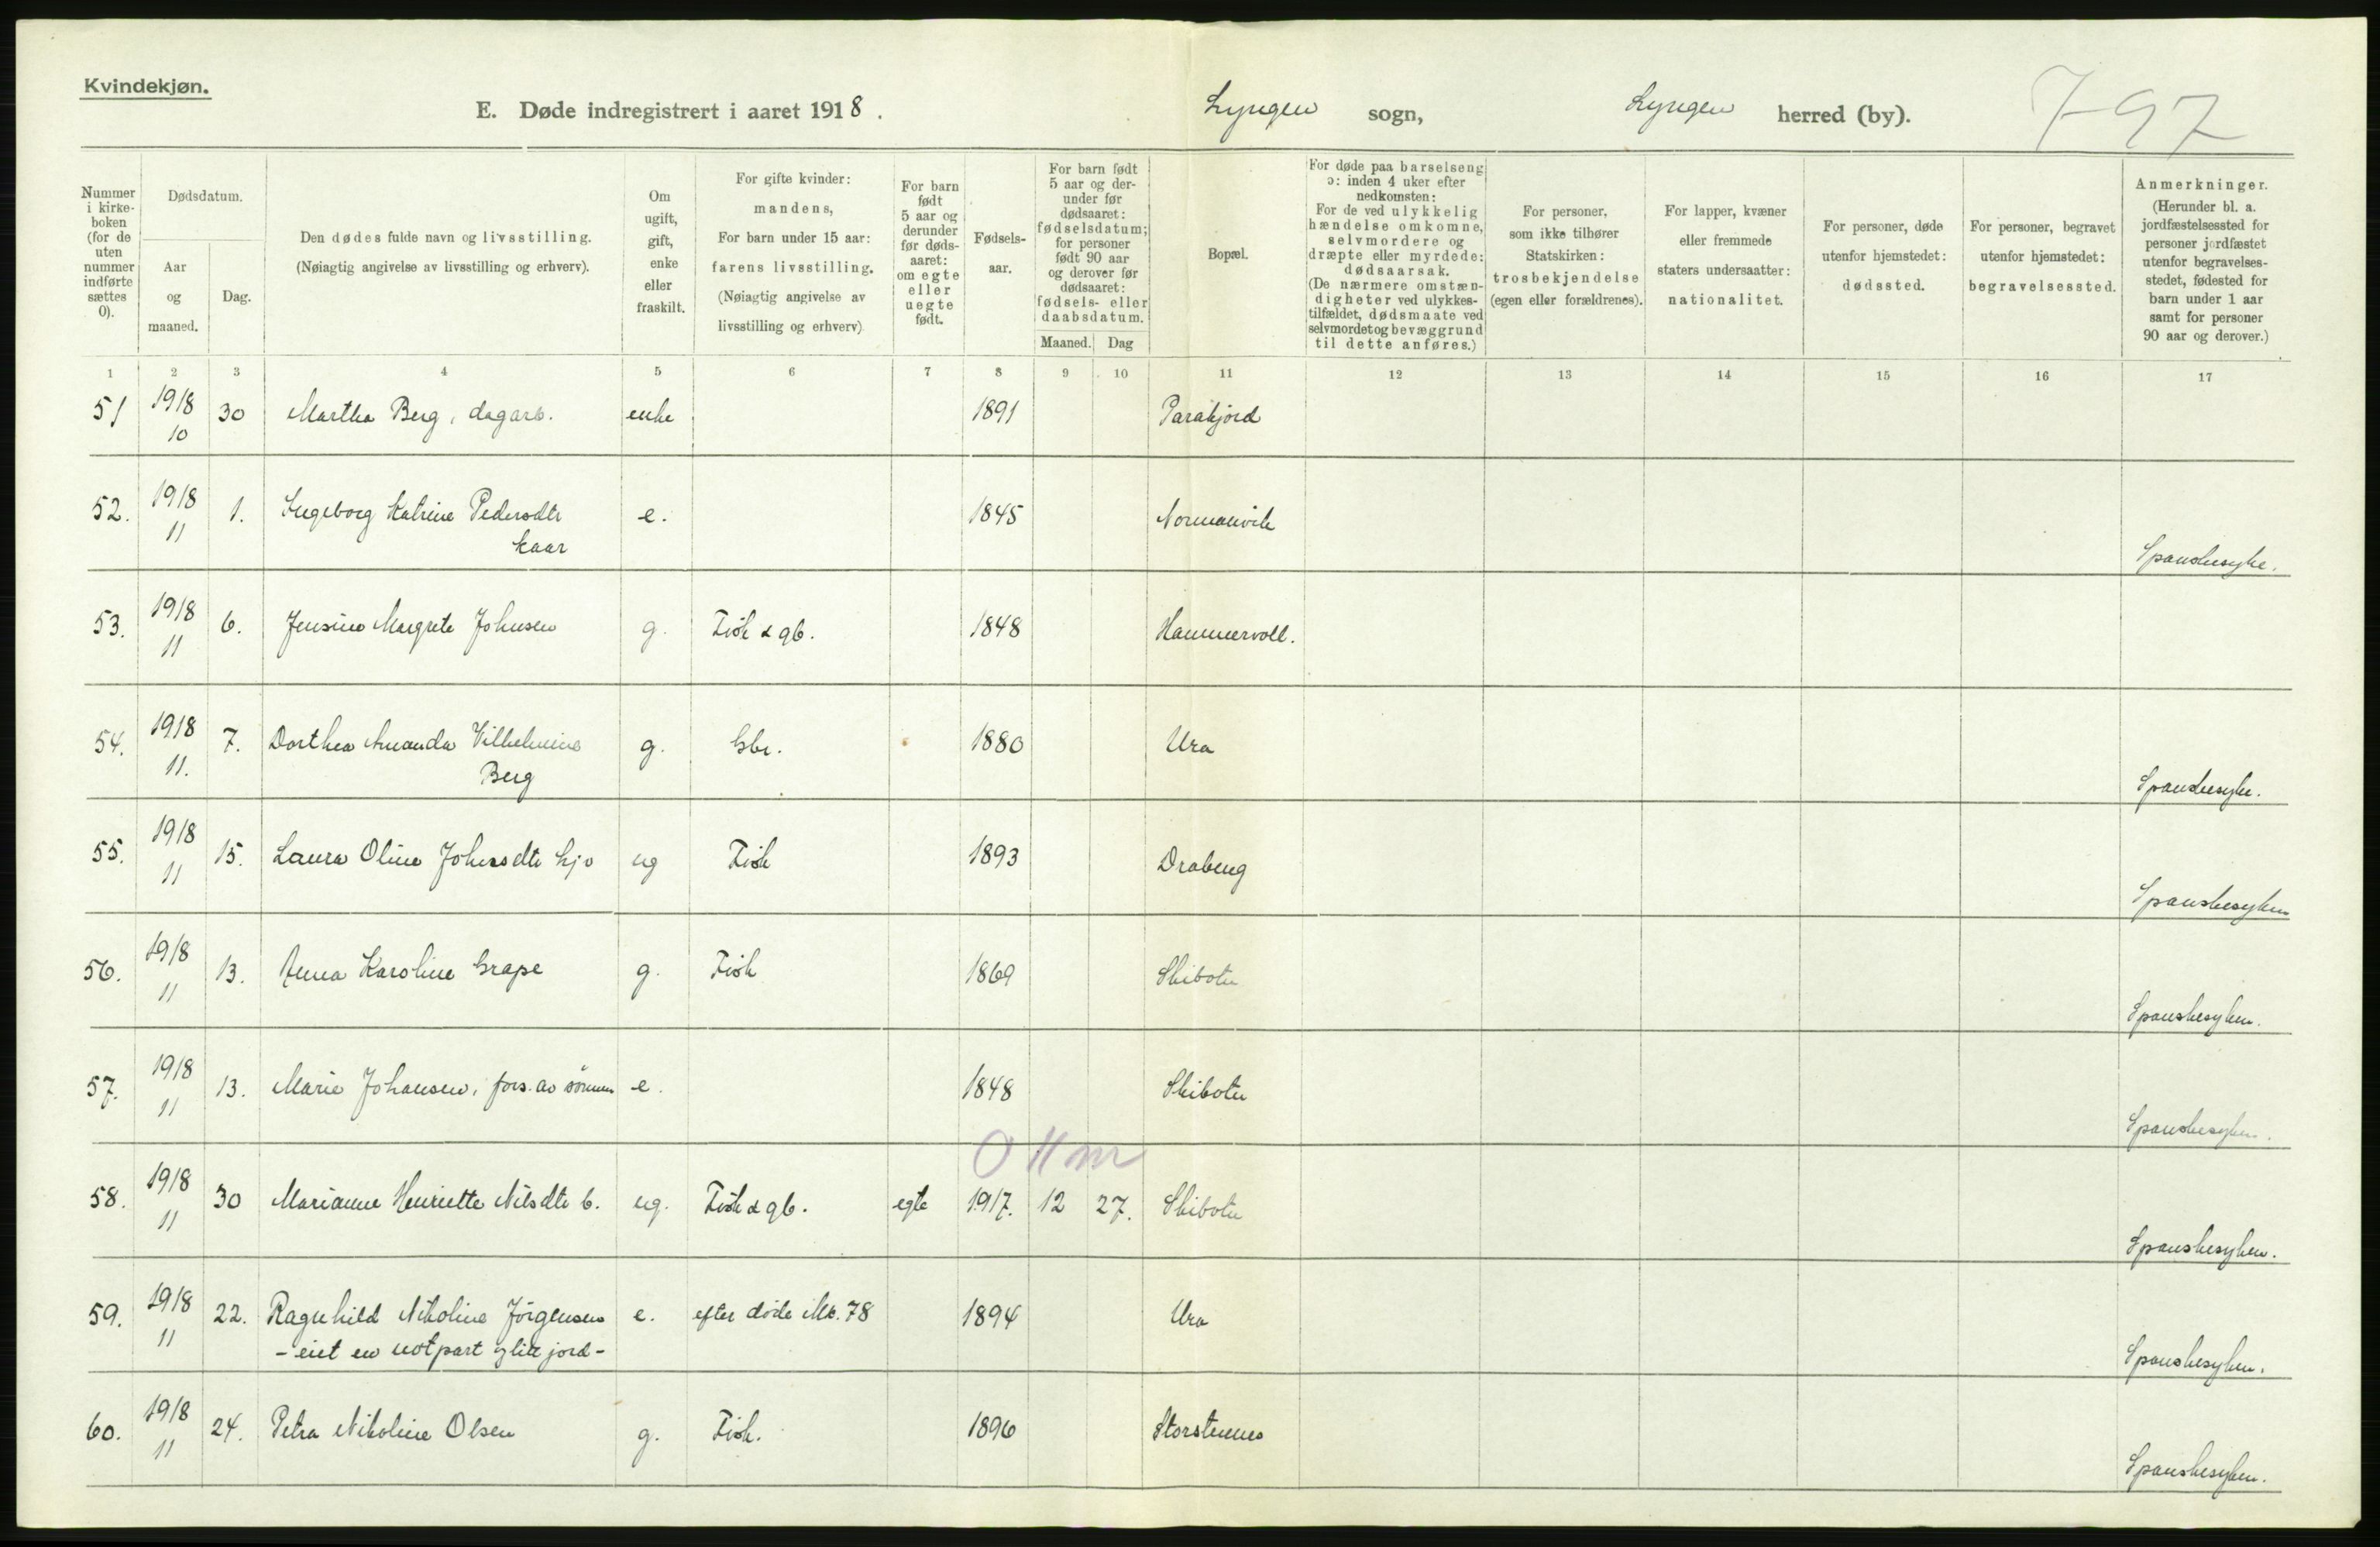 Kvindekjøn.
E. Døde indregistrert i aaret 1918.
Lyngen sogn,
Lyngen herred (by).
7-97
Nummer i kirke-boken (for de uten nummer indførte sættes 0).
Dødsdatum.
Aar og maaned.
Dag.
Den dødes fulde navn og livsstilling.
(Nøiagtig angivelse av livsstilling og erhverv).
Om ugift, gift, enke eller fraskilt.
For gifte kvinder: mandens,
For barn under 15 aar: farens livsstilling.
(Nøiagtig angivelse av livsstilling og erhverv)
For barn født 5 aar og derunder før døds-aaret: om egte eller uegte født.
Fødsels-aar.
For barn født 5 aar og der-under før dødsaaret: fødselsdatum; for personer født 90 aar og derover før dødsaaret: fødsels- eller daabsdatum.
Maaned.
Dag
Bopæl.
For døde paa barselseng ɔ: inden 4 uker efter nedkomsten:
For de ved ulykkelig hændelse omkomne, selvmordere og dræpte eller myrdede: dødsaarsak.
(De nærmere omstæn-digheter ved ulykkes-tilfældet, dødsmaate ved selvmordet og bevæggrund til dette anføres.)
For personer, som ikke tilhører Statskirken: trosbekjendelse (egen eller forældrenes).
For lapper, kvæner eller fremmede staters undersaatter: nationalitet.
For personer, døde utenfor hjemstedet: dødssted.
For personer, begravet utenfor hjemstedet: begravelsessted.
Anmerkninger.
(Herunder bl. a. jordfæstelsessted for personer jordfæstet utenfor begravelses-stedet, fødested for barn under 1 aar samt for personer 90 aar og derover.)
1 2 3 4 5 6 7 8 9 10 11 12 13 14 15 16 17
51 1918 10 30 Martha Berg, dagarb. enke 1891 Parakjord
52. 1918 11 1. Ingeborg Katrine Pedersdtr e. 1845 Normanvik
Kaar
Spanskesyke.
53. 1918 11 6. Jensine Margrete Johnsen g. Fisk & gb. 1848 Hammervoll.
54. 1918 11. 7. Dorthea Amanda Vilhelmine g. Gbr. 1880 Ura
Berg
Spanskesyke.
55. 1918 11 15. Laura Oline Johnsdtr ug Fisk 1893 Drabeng
Spanskesyken
56. 1918 11 13. Anna Karoline Grape g. Fisk 1869 Skibotn
Spanskesyken.
57. 1918 11 13. Marie Johansen, fors. av sönnen e. 1848 Skibotn
Spanskesyken.
0 11 m
58. 1918 11 30 Marianne Henriette Nilsdtr ug. Fisk & gb. egte 1917. 12 27. Skibotn
Spanskesyken.
59. 1918 11 22. Ragnhild Nikoline Jörgensen e. efter döde Mk. 78 1894 Ura
- eiet en notpart & litt jord -
Spanskesyken.
60. 1918 11 24. Petra Nikoline Olsen g. Fisk. 1896 Storstennes
Spanskesyken.